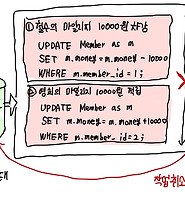 ① 철수의 마일리지 10000원 차감
UPDATE Member as m
SET m.money = m.money - 10000
WHERE m.member_id = 1;
② 영희의 마일리지 10000원 적립
UPDATE Member as m
SET m.money = m.money + 10000
WHERE m.member_id = 2;
작업취소